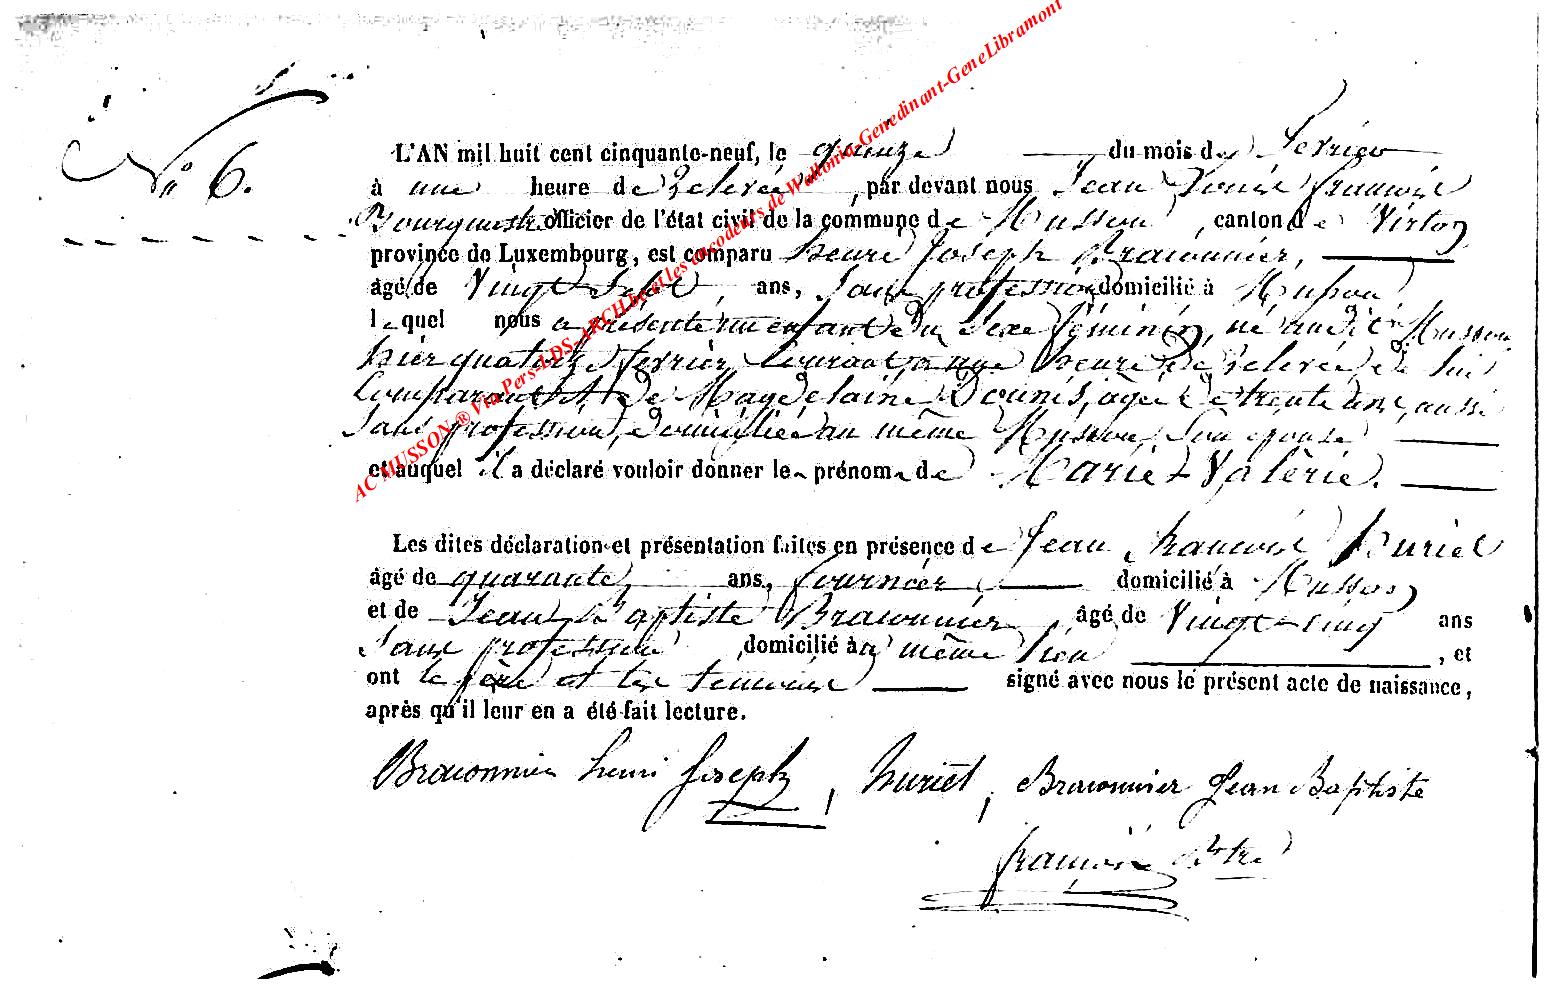 N° 6.
L'AN mil huit cent cinquante-neuf, le quinze du mois de Fevrier
à une heure de relevée, par devant nous Jean Louis françois
Bourguestre officier de l'état civil de la commune de Musson, canton de Virton
province de Luxembourg, est comparu henri Joseph Braconnier,
âgé de Vingt Sept ans, Sans profession domicilié à Musson
lequel nous a présenté un enfant du Sexe féminin, né audit Musson
hier quatorze fevrier Courant, à une heure de relevée de lui
Comparant et de Magdelaine Dounis, agée de trente ans, aussi
Sans profession, domiciliée au même Musson, Son épouse
et auquel il a déclaré vouloir donner les prénoms de Marie Valèrie.
Les dites déclaration et présentation faites en présence de Jean françois huriet
âgé de quarante ans, fournier domicilié à Musson
et de Jean Baptiste Braconnier âgé de Vingt-cinq ans
Sans profession, domicilié au même lieu, et
ont le père et les temoins signé avec nous le présent acte de naissance,
après qu'il leur en a été fait lecture.
Braconnier henri Joseph, huriet, Braconnier Jean Baptiste
françois Bstre
AC MUSSON ® Via Pers-LDS-ARCH.be et les encodeurs de Wallonia-Genedinant-GeneLibramont